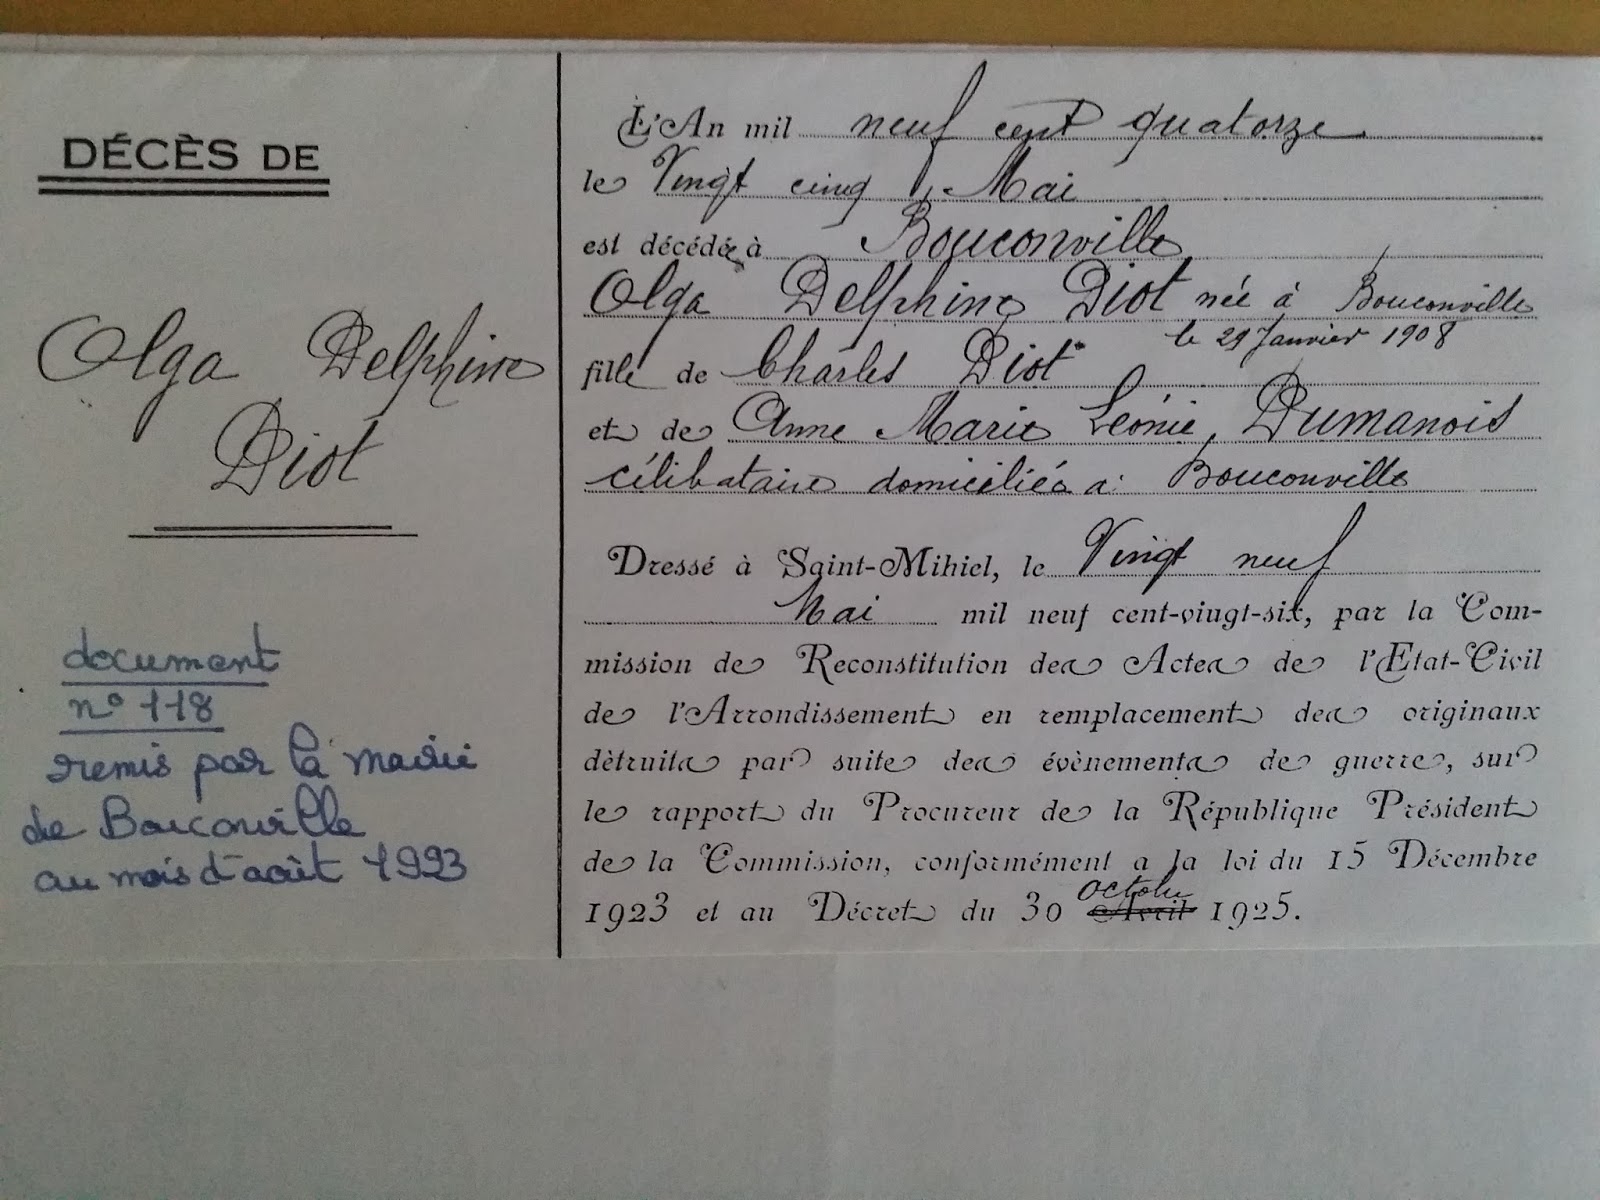 DÉCÈS DE
Olga Delphine
Diot
document
n° 118
remis par la mairie
de Bouconville
au mois d'août 1993
L'An mil neuf cent quatorze
le Vingt cinq Mai
est décédée à Bouconville
Olga Delphine Diot née à Bouconville
le 29 Janvier 1908
fille de Charles Diot
et de Anne Marie Léonie Dumanois
célibataire domiciliée à Bouconville
Dressé à Saint-Mihiel, le Vingt neuf
Mai mil neuf cent-viugt-six, par la Com-
mission de Reconstitution des Actes de l'Etat-Civil
de l'Arrondissement en remplacement des originaux
dètruits par suite des évènements de guerre, sur
le rapport du Procureur de la République Président
de la Commission, conformément a la loi du 15 Décembre
octobre
1923 et au Décret du 30 Avril 1925.